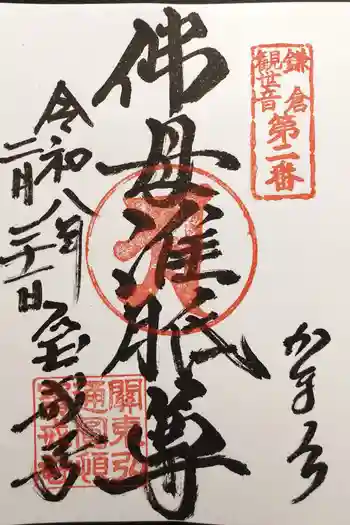 鎌倉
観世音
第二番
かまくら
佛母准胝尊
令和八年
二月二十一日
宝戒寺
關東弘
通圓頓
寶戒寺